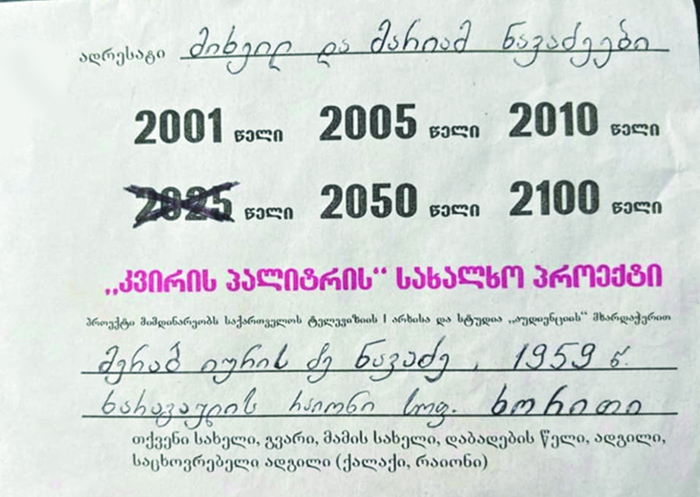 ადრესატი მიხეილ და მარიამ ნავაძეები
2001 წელი 2005 წელი 2010 წელი
2025 წელი 2050 წელი 2100 წელი
„კვირის პალიტრის“ სახალხო პროექტი
პროექტი მიმდინარეობს საქართველოს ტელევიზიის I არხისა და სტუდია „აუდიენციის“ მხარდაჭერით
მერაბ იურის ძე ნავაძე, 1959 წ.
ხარაგაულის რაიონი სოფ. ხორითი
თქვენი სახელი, გვარი, მამის სახელი, დაბადების წელი, ადგილი,
საცხოვრებელი ადგილი (ქალაქი, რაიონი)